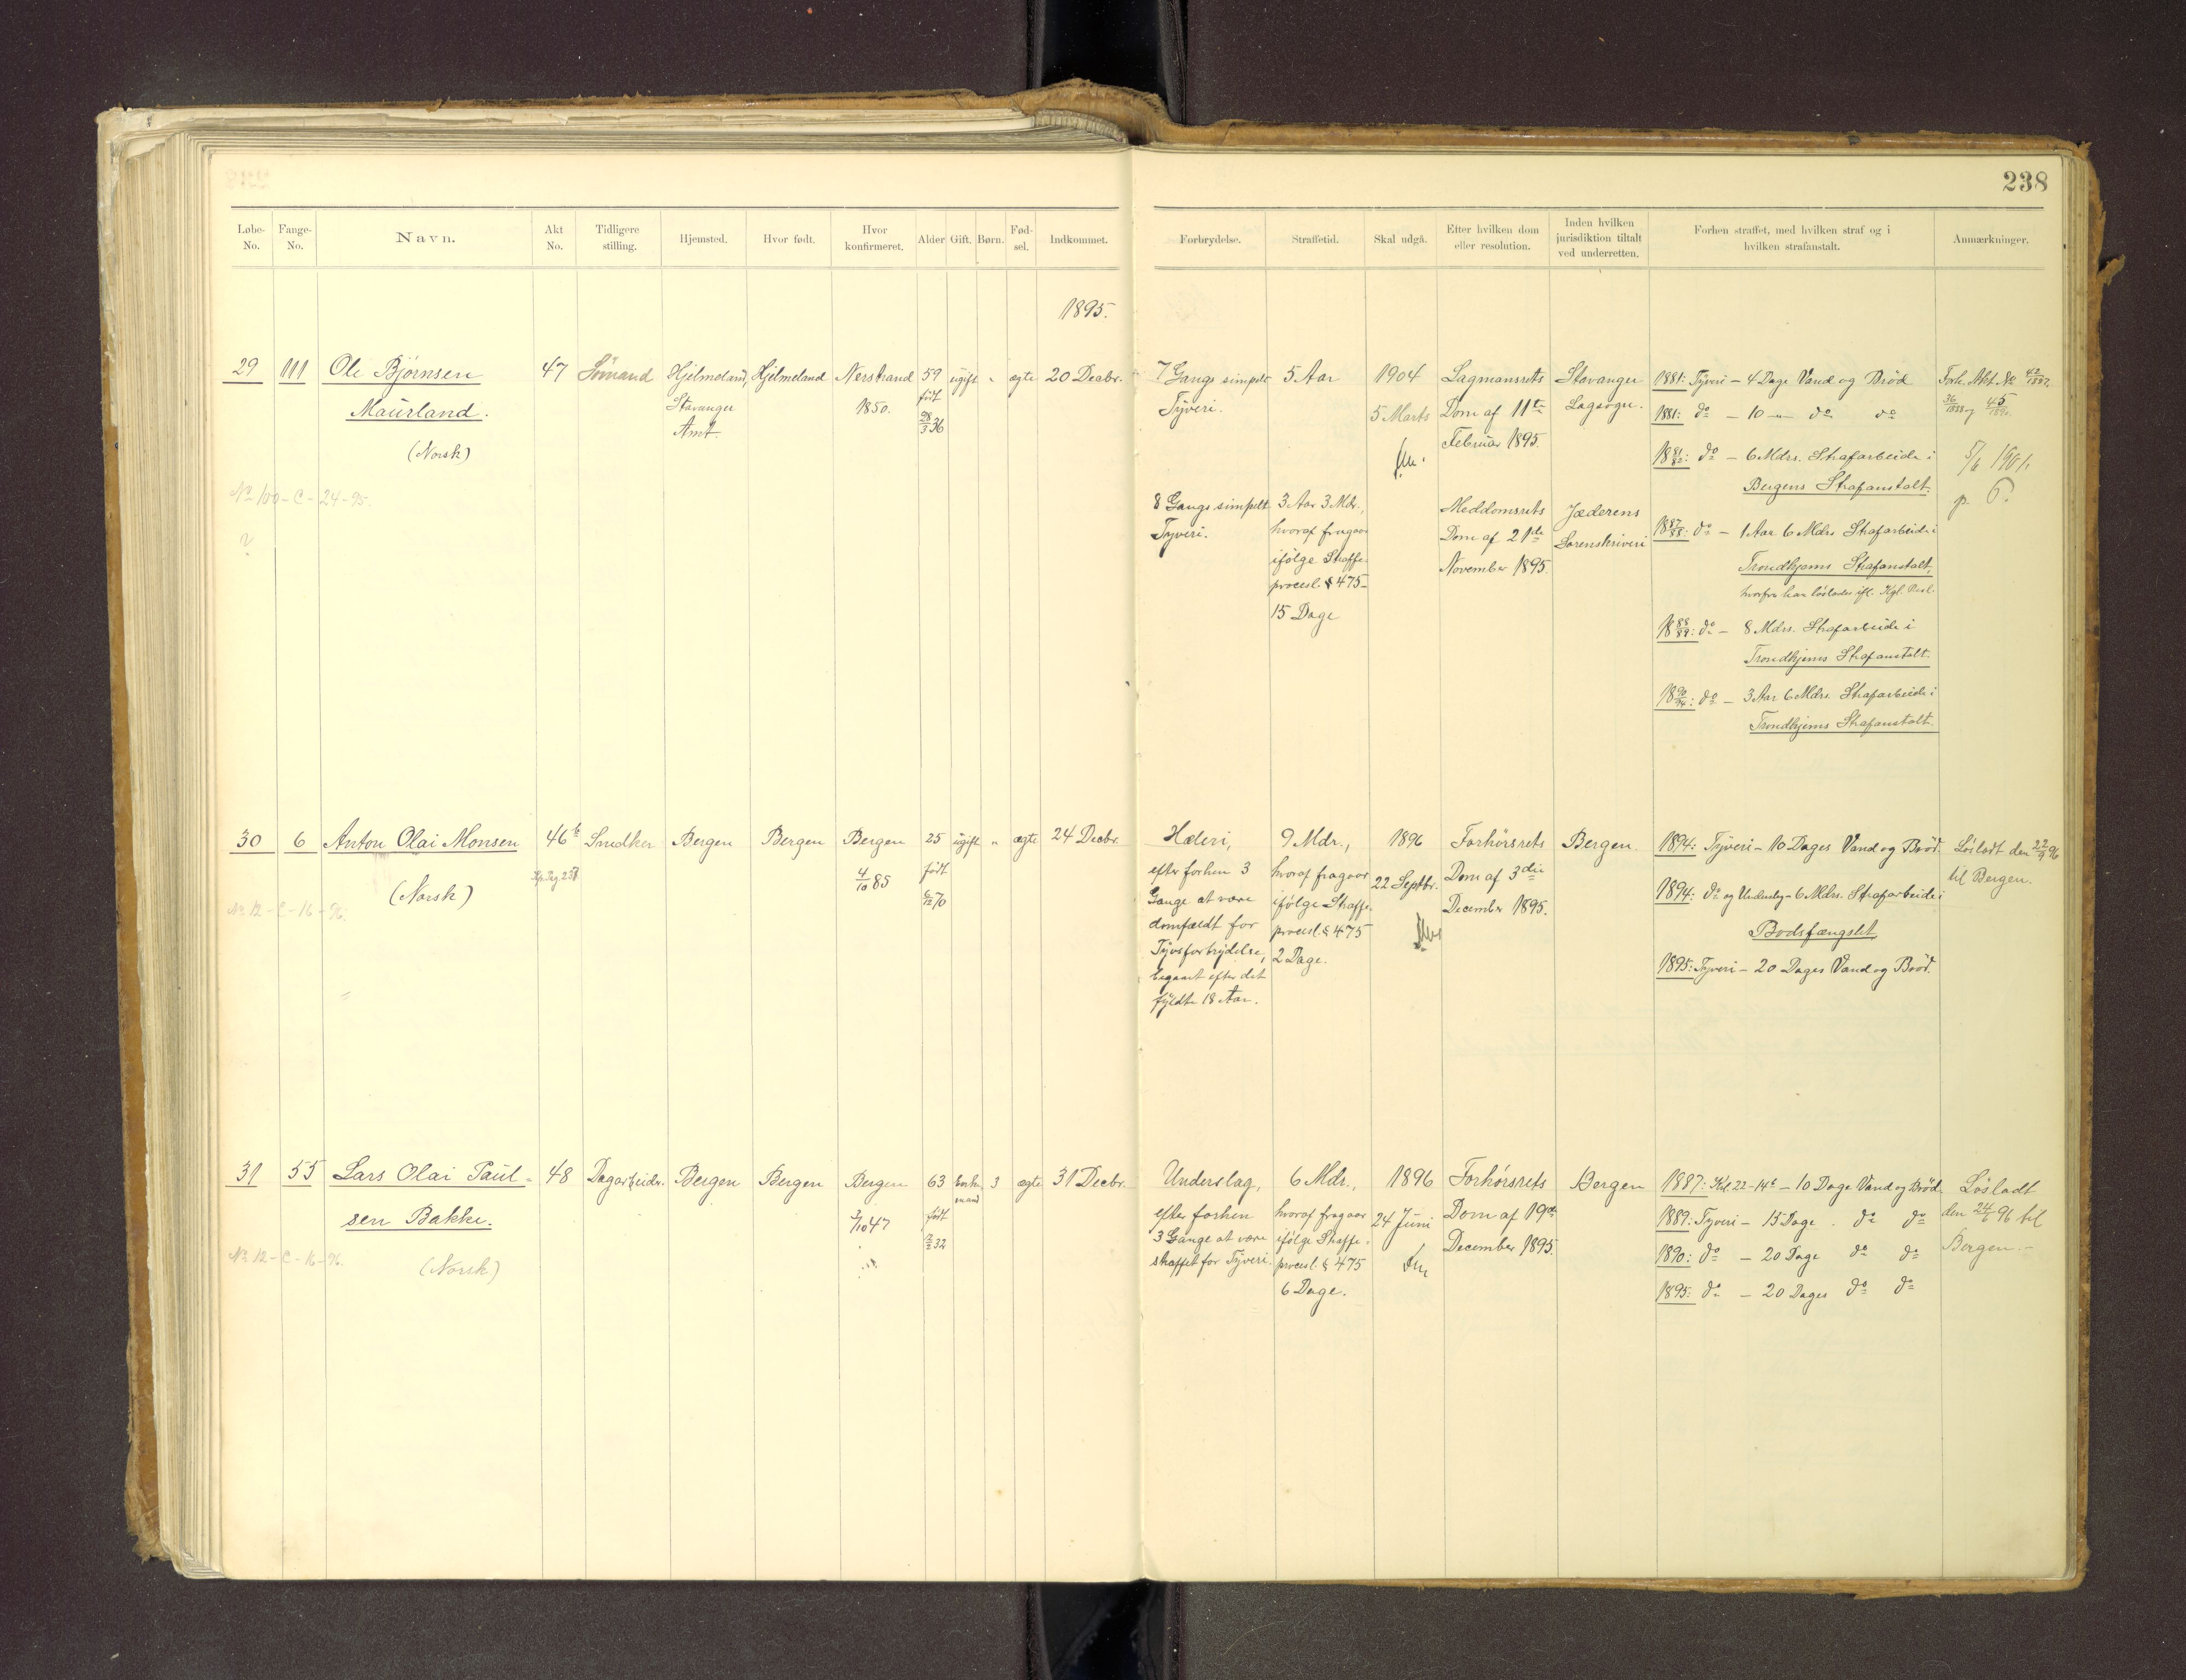 238
Løbe-No. Fange-No. Navn. Akt No. Tidligere stilling. Hjemsted. Hvor født. Hvor konfirmeret. Alder Gift. Børn. Fød-sel. Indkommet.
Forbrydelse. Straffetid. Skal udgå. Efter hvilken dom eller resolution. Inden hvilken jurisdiktion tiltalt ved underretten. Forhen straffet, med hvilken straf og i hvilken strafanstalt. Anmærkninger.
1895.
29 111 Ole Bjørnsen
Maurland.
(Norsk)
No 100-C-24-95.
47 Sømand
Hjelmeland,
Stavanger
Amt.
Hjelmeland
Nerstrand
1850.
59
født
28/3 36
ugift " ægte 20 Decbr.
7 Gangs simpelt
Tyveri.
5 Aar
1904
5 Marts
Lagmansrets
Dom af 11te
Februar 1895.
Stavanger
Lagsogn.
8 Gangs simpelt
Tyveri.
3 Aar 3 Mdr.,
hvoraf fragaar
ifølge Straffe-
procesl. § 475-
15 Dage
Meddomsrets
Dom af 21de
November 1895.
Jæderens
Sorenskriveri
1881: Tyveri - 4 Dage Vand og Brød
1881: do - 10 - " - do do
18 81/82: do - 6 Mdrs. Strafarbeide i
Bergens Strafanstalt.
18 87/88: do - 1 Aar 6 Mdrs Strafarbeide i
Trondhjems Strafanstalt,
hvorfra han løslades ifl. Kgl. Resl.
18 88/89: do - 8 Mdrs. Strafarbeide i
Trondhjems Strafanstalt.
18 90/94: do - 3 Aar 6 Mdrs. Strafarbeide i
Trondhjems Strafanstalt.
Forh. Akt No
5/6 1901.
p. 6.
30 6 Anton Olai Monsen
(Norsk)
No 12-C-16-96.
46 b
Snedker
Bergen
Bergen
Bergen
4/10 85
25
født
6/12 70
ugift " ægte 24 Decbr.
Hæleri,
efter forhen 3
Gange at være
domfældt for
Tyvsforbrydelse,
begaaet efter det
fyldte 18 Aar.
9 Mdr.,
hvoraf fragaar
ifølge Straffe-
procesl. § 475
2 Dage.
1896
22 Septbr.
Forhørsrets
Dom af 3die
December 1895.
Bergen.
1894: Tyveri - 10 Dages Vand og Brød.
1894: do og Underslag - 6 Mdrs. Strafarbeide i
Bodsfængslet
1895: Tyveri - 20 Dages Vand og Brød.
Løsladt den 22/9 96
til Bergen.
31 55 Lars Olai Paul-
sen Bakke.
(Norsk)
No 12-C-16-96.
48
Dagarbeider.
Bergen
Bergen
Bergen
3/10 47
63
født
2/2 32
Enke-
mand
3 ægte 31 Decbr.
Underslag,
efter forhen
3 Gange at være
straffet for Tyveri.
6 Mdr.,
hvoraf fragaar
ifølge Straffe-
procesl. § 475
6 Dage.
1896
24 Juni
Forhørsrets
Dom af 19de
December 1895.
Bergen
1887: Kl. 22-14c - 10 Dage Vand og Brød.
1889: Tyveri - 15 Dage do do
1890: do - 20 Dage do do
1895: do - 20 Dages do do
Løsladt
den 24/6 96 til
Bergen.-